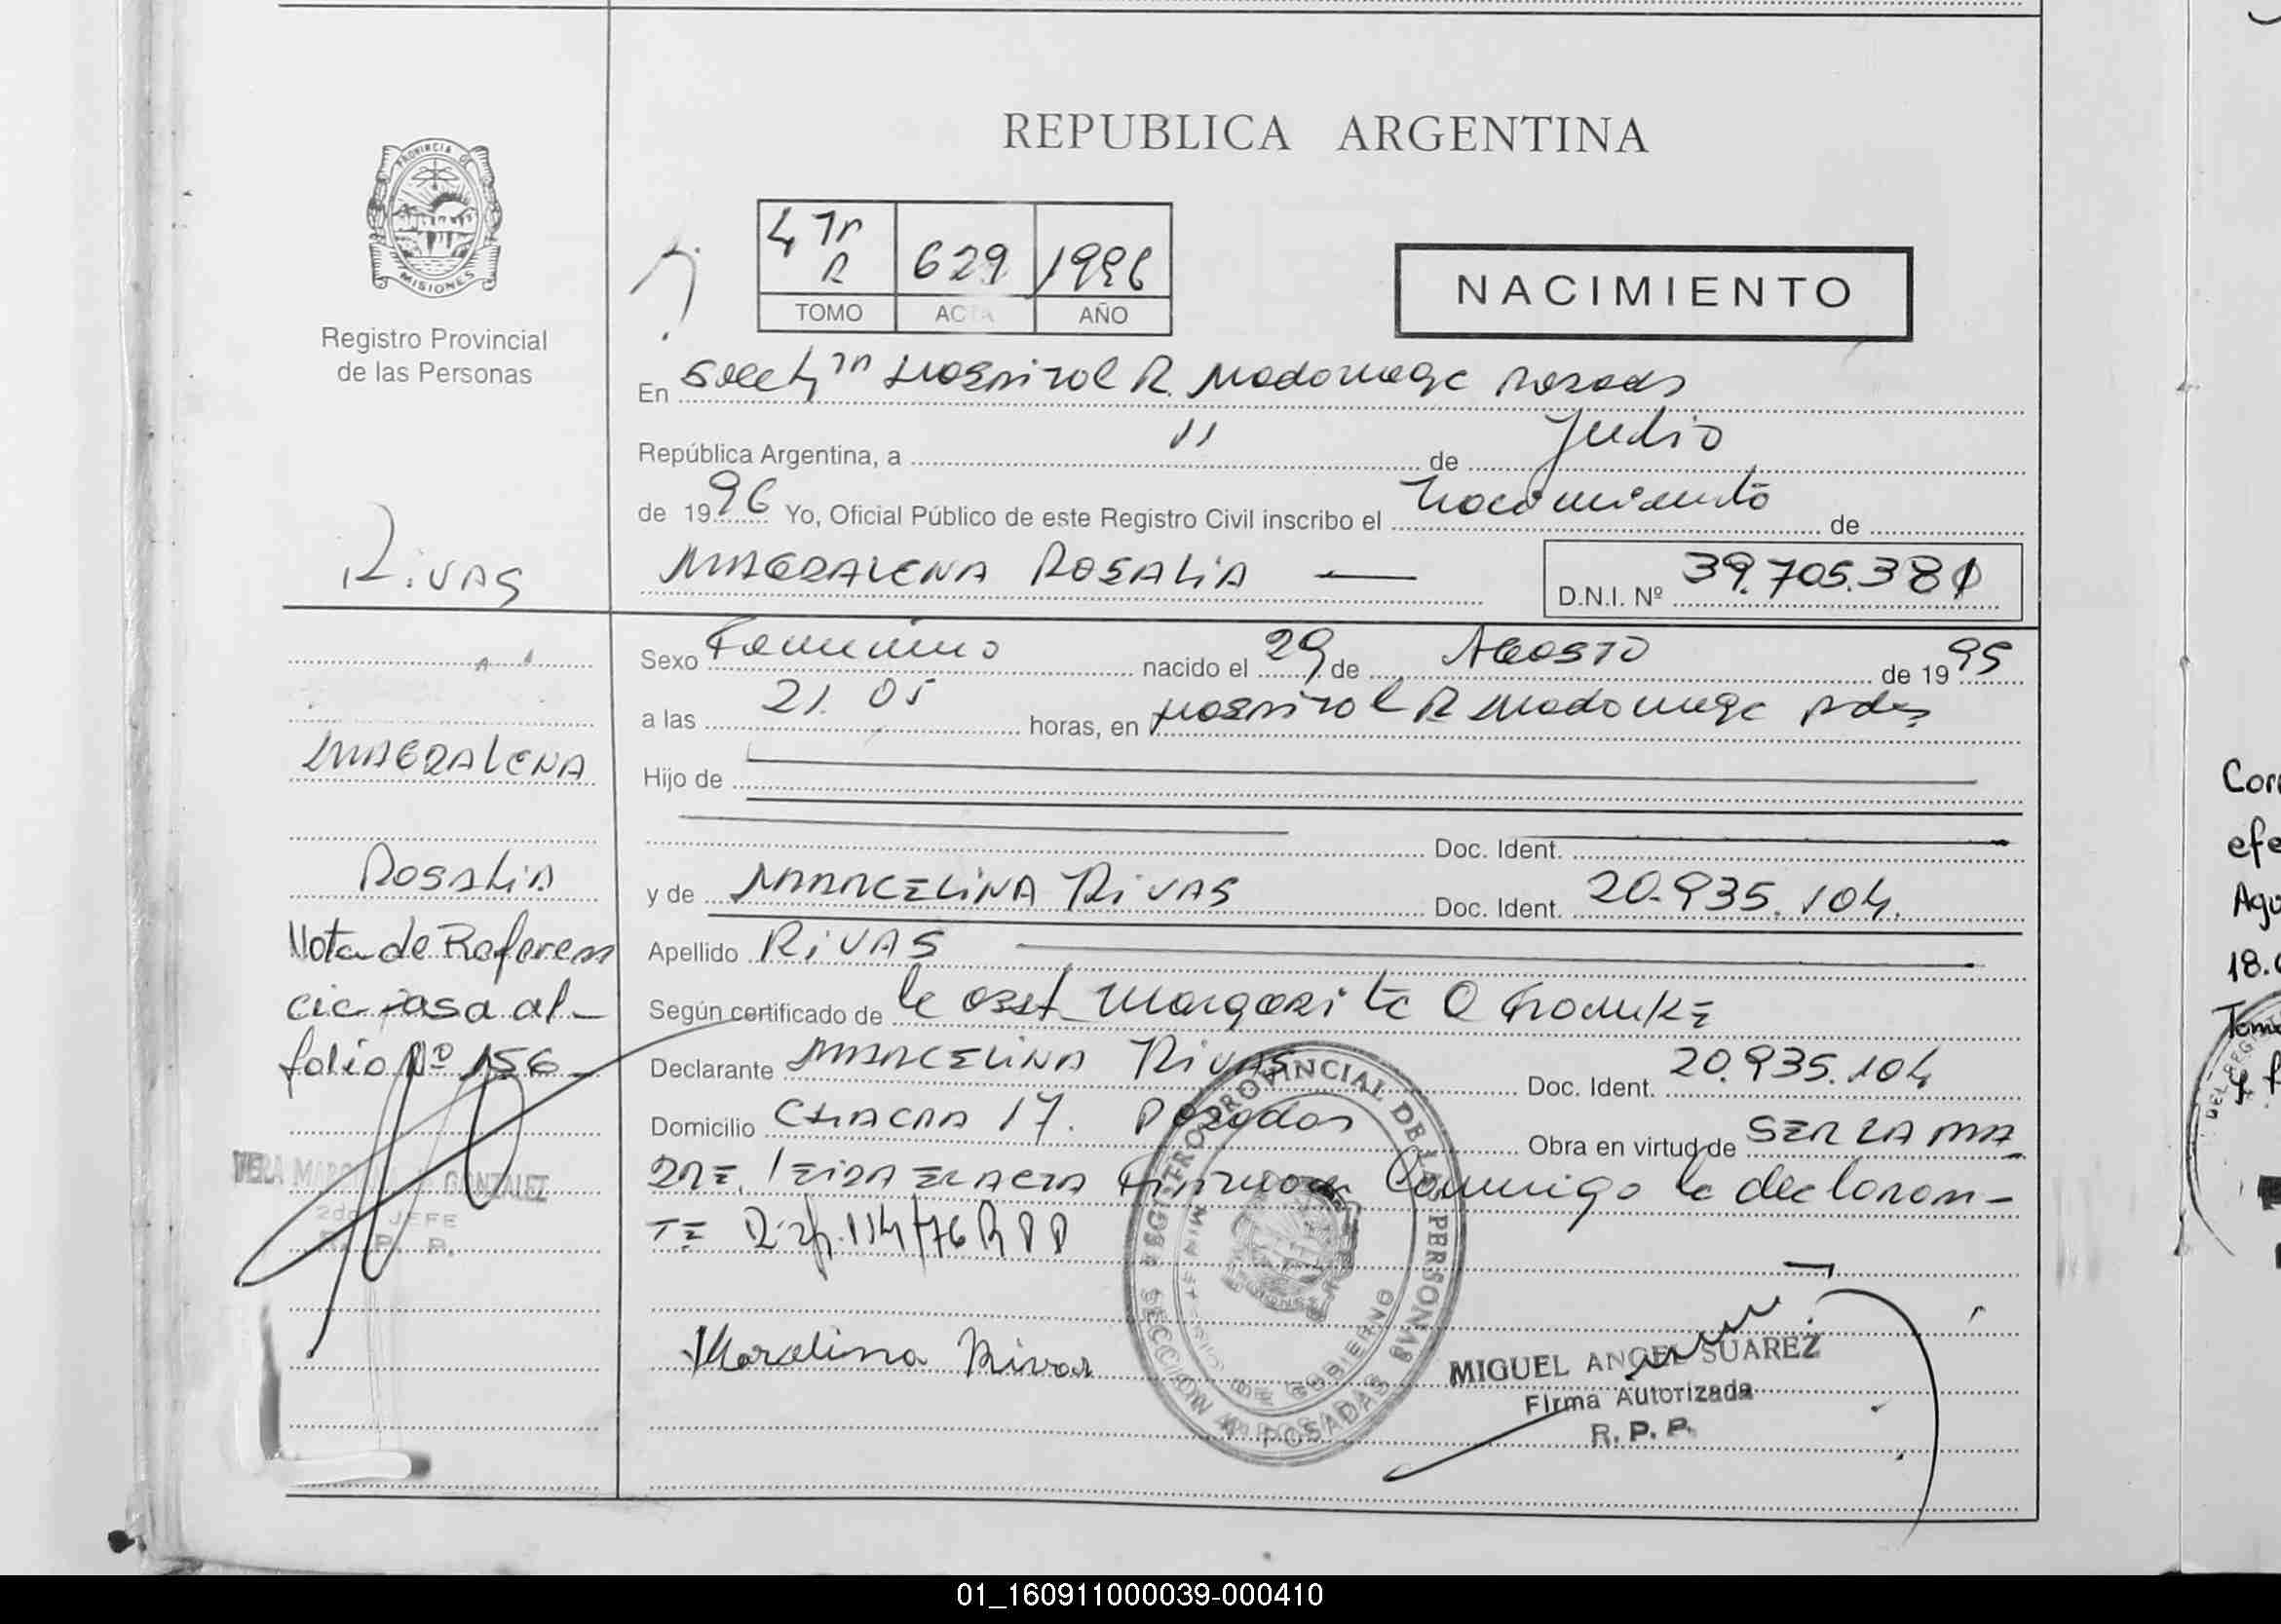 REPUBLICA ARGENTINA
PROVINCIA DE
MISIONES
Registro Provincial
de las Personas
4 Tn R 629 1996
TOMO ACTA AÑO
NACIMIENTO
En Secc 4 Tn Hospital R. Madariaga Posadas
República Argentina, a 11 de Julio
de 1996 Yo, Oficial Público de este Registro Civil inscribo el nacimiento de
MAGDALENA ROSALIA
D.N.I. Nº 39.705.380
Rivas
Sexo Femenino nacido el 29 de AGOSTO de 1995
a las 21.05 horas, en Hospital R Madariaga Pdas
Hijo de
Doc. Ident.
y de MARCELINA RIVAS Doc. Ident. 20.935.104.
Apellido RIVAS
Según certificado de la obst Margarita Q Franke
Declarante MARCELINA RIVAS Doc. Ident. 20.935.104
Domicilio CHACRA 17. Posadas Obra en virtud de SER LA MA
DRE. LEIDA EL ACTA Firma Conmigo la declaran-
TE 114/76 RPP
Marcelina Rivas
MIGUEL ANGEL SUAREZ
Firma Autorizada
R. P. P.
REGISTRO PROVINCIAL DE LAS PERSONAS
SECCION POSADAS
DE GOBIERNO
MAGDALENA
ROSALIA
Nota de Referen
cia pasa al-
folio Nº 156-
GONZALEZ
2do JEFE
R. P. P.
Corr
efe
Agu
18.
Tomo
y f
01_160911000039-000410